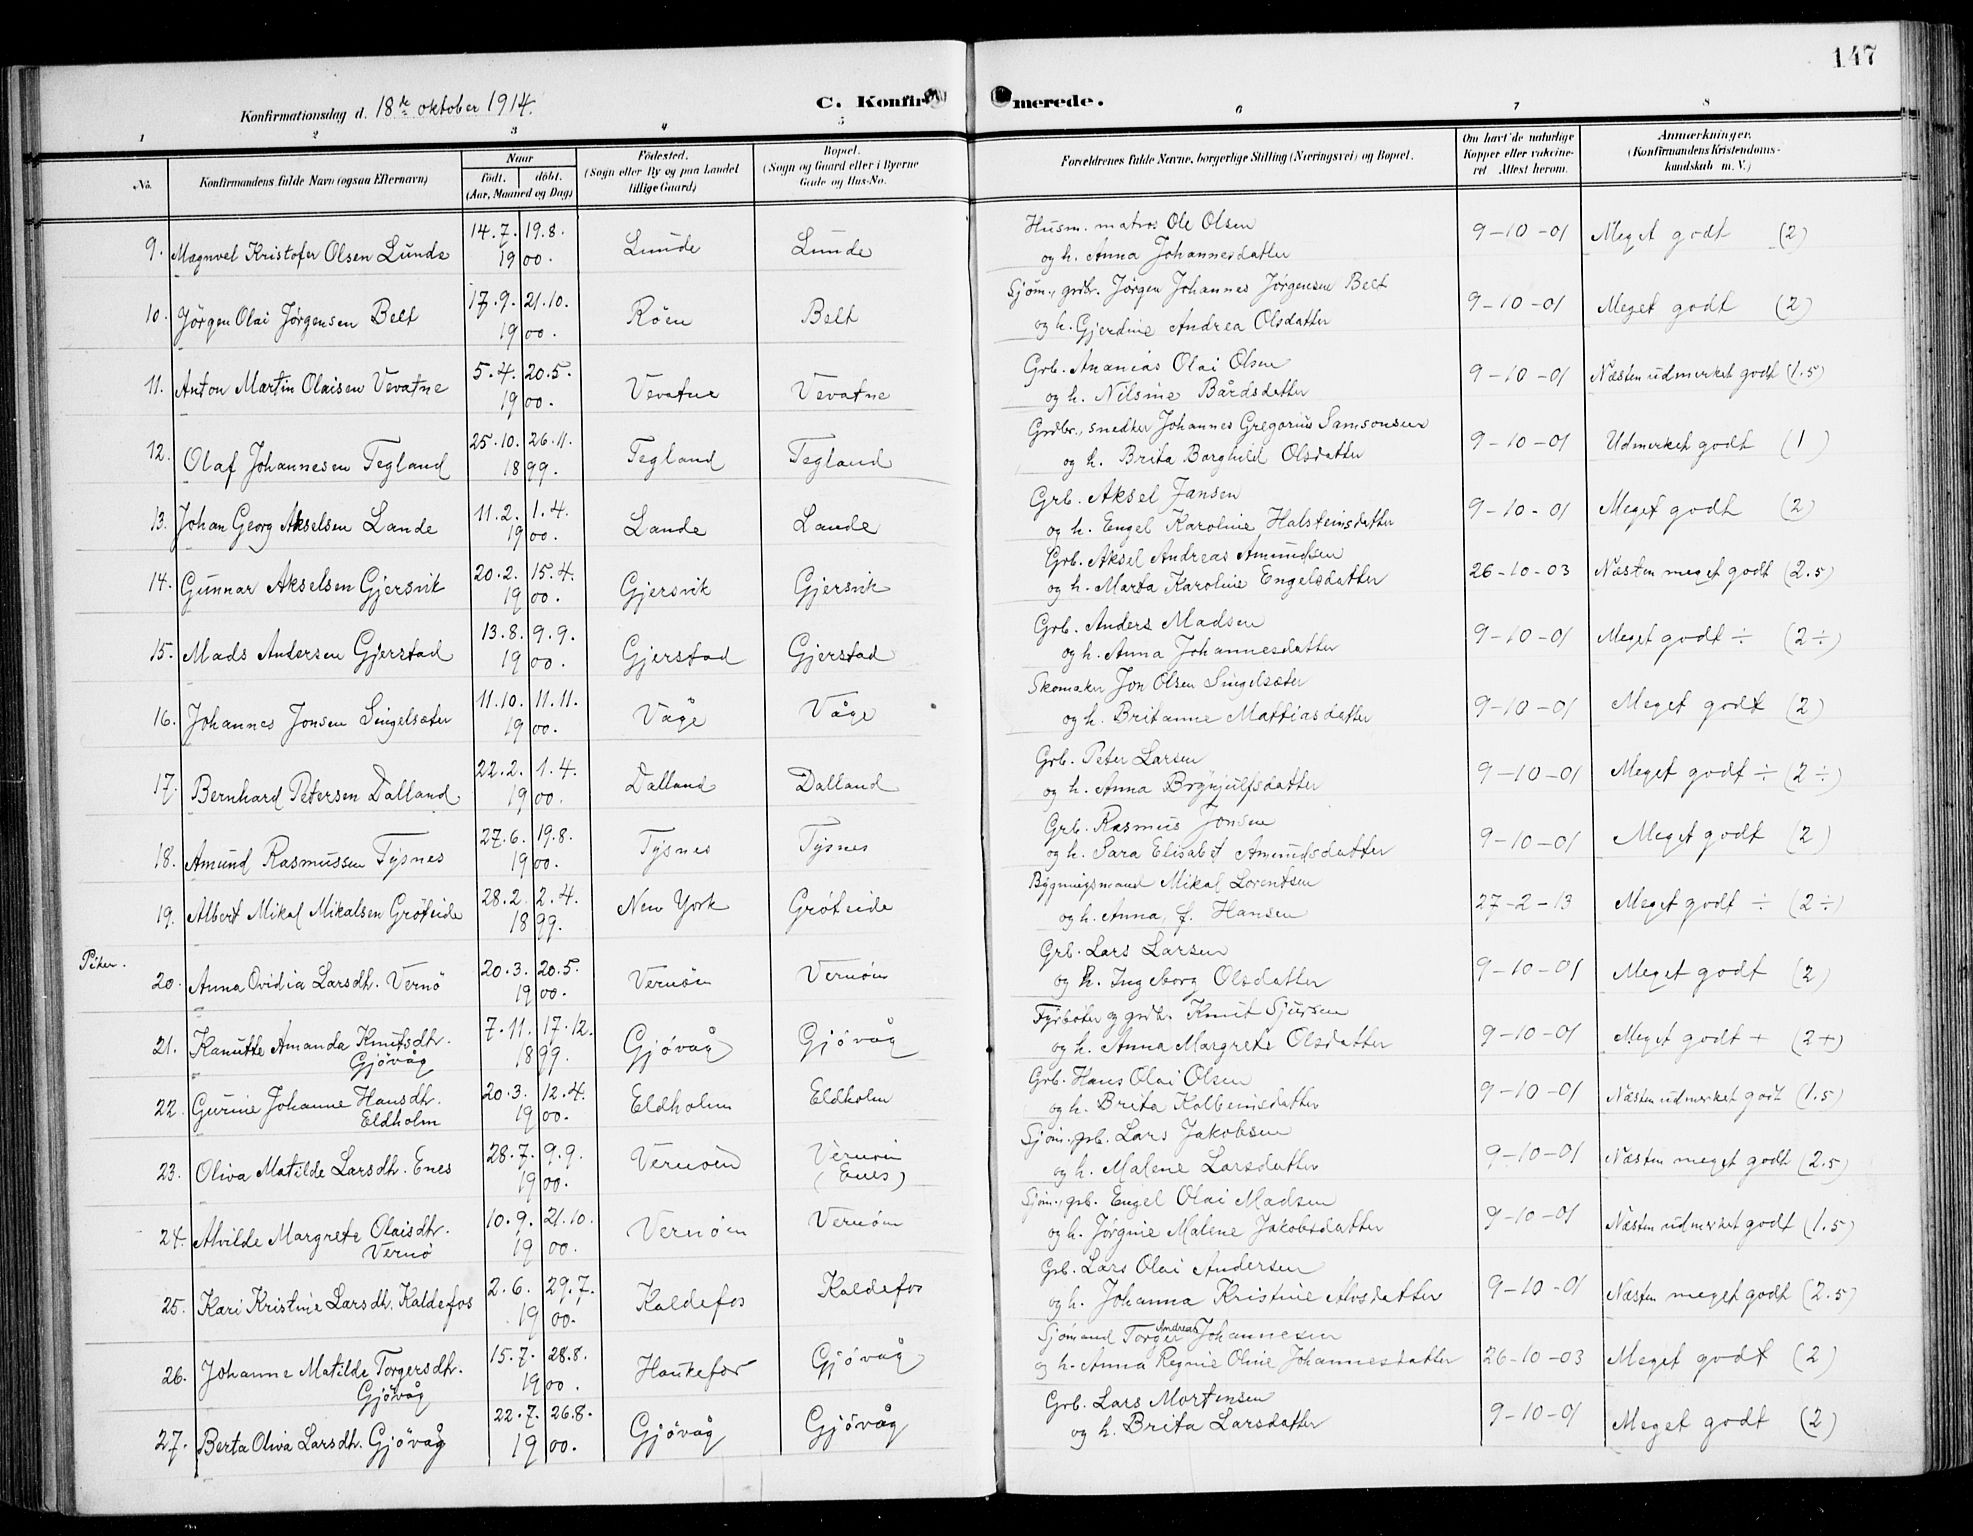 147
Konfirmationsdag d. 18de oktober 1914.
C. Konfirmerede.
1 2 3 4 5 6 7 8
No. Konfirmandens fulde Navn (ogsaa Efternavn) Naar født. døbt. (Aar, Maaned og Dag) Fødested. (Sogn eller By og paa Landet tillige Gaard) Bopæl. (Sogn og Gaard eller i Byerne Gade og Hus-No. Forældrenes fulde Navne, borgerlige Stilling (Næringsvei) og Bopæl. Om havt de naturlige Kopper eller vakcineret. Attest herom. Anmærkninger. (Konfirmandens Kristendomskundskab m. V.)
9. Magnvel Kristofer Olsen Lunde 14.7. 1900. 19.8. 1900. Lunde Lunde Husm. matros Ole Olsen
og h. Anna Johannesdatter 9-10-01 Meget godt (2)
10. Jørgen Olai Jørgensen Belt 17.9. 21.10. 1900. Röen Belt Sjøm., grdbr. Jørgen Johannes Jørgensen Belt
og h. Gjerdine Andrea Olsdatter 9-10-01 Meget godt (2)
11. Anton Martin Olaisen Vevatne 5.4. 20.5. 1900. Vevatne Vevatne Grb. Ananias Olai Olsen
og h. Nilsine Bårdsdatter 9-10-01 Næsten udmerket godt (1.5)
12. Olaf Johannesen Tegland 25.10. 26.11. 1899. Tegland Tegland Grdbr., snedker Johannes Gregorius Samsonsen
og h. Brita Borghild Olsdatter 9-10-01 Udmerket godt (1)
13. Johan Georg Akselsen Lande 11.2. 1.4. 1900. Lande Lande Grb. Aksel Jansen
og h. Engel Karoline Halsteinsdatter 9-10-01 Meget godt (2)
14. Gunnar Akselsen Gjersvik 20.2. 15.4. 1900. Gjersvik Gjersvik Grb. Aksel Andreas Amundsen
og h. Marta Karoline Engelsdatter 26-10-03 Næsten meget godt (2.5)
15. Mads Andersen Gjerstad 13.8. 9.9. 1900. Gjerstad Gjerstad Grb. Anders Madsen
og h. Anna Johannesdatter 9-10-01 Meget godt ÷ (2÷)
16. Johannes Jonsen Singelsæter 11.10. 11.11. 1900. Våge Våge Skomaker Jon Olsen Singelsæter
og h. Britanne Mattiasdatter 9-10-01 Meget godt (2)
17. Bernhard Petersen Dalland 22.2. 1.4. 1900. Dalland Dalland Grb. Peter Larsen
og h. Anna Brynjulfsdatter 9-10-01 Meget godt ÷ (2÷)
18. Amund Rasmussen Tysnes 27.6. 19.8. 1900. Tysnes Tysnes Grb. Rasmus Jonsen
og h. Sara Elisabet Amundsdatter 9-10-01 Meget godt (2)
19. Albert Mikal Mikalsen Gröteide 28.2. 2.4. 1899. New York Gröteide Bygningsmand Mikal Lorentsen
og h. Anna, f. Hansen 27-2-13 Meget godt ÷ (2÷)
Piker.
20. Anna Ovidia Larsdtr. Vernö 20.3. 20.5. 1900. Vernöen Vernöen Grb. Lars Larsen
og h. Ingeborg Olsdatter 9-10-01 Meget godt (2)
21. Kanutte Amanda Knutsdtr. Gjövåg 7.11. 17.12. 1899. Gjövåg Gjövåg Fyrbøter og grdbr. Knut Sjursen
og h. Anna Margrete Olsdatter 9-10-01 Meget godt + (2+)
22. Gurine Johanne Hansdtr. Eldholm 20.3. 12.4. 1900. Eldholm Eldholm Grb. Hans Olai Olsen
og h. Brita Kolbeinsdatter 9-10-01 Næsten udmerket godt (1.5)
23. Oliva Matilde Larsdtr. Enes 28.7. 9.9. 1900. Vernöen Vernöen (Enes) Sjøm., grb. Lars Jakobsen
og h. Malene Larsdatter 9-10-01 Næsten meget godt (2.5)
24. Alvilde Margrete Olaisdtr. Vernö 10.9. 21.10. 1900. Vernöen Vernöen Sjøm., grb. Engel Olai Madsen
og h. Jørgine Malene Jakobsdatter 9-10-01 Næsten udmerket godt (1.5)
25. Kari Kristine Larsdtr. Kaldefos 2.6. 29.7. 1900. Kaldefos Kaldefos Grb. Lars Olai Andersen
og h. Johanna Kristine Alvsdatter 9-10-01 Næsten meget godt (2.5)
26. Johanne Matilde Torgersdtr. Gjövåg 15.7. 28.8. 1900. Haukefær Gjövåg Sjømand Torger Andreas Johannesen
og h. Anna Regine Oline Johannesdatter 26-10-03 Meget godt (2)
27. Berta Oliva Larsdtr. Gjövåg 22.7. 26.8. 1900. Gjövåg Gjövåg Grb. Lars Mortensen
og h. Brita Larsdatter 9-10-01 Meget godt (2)